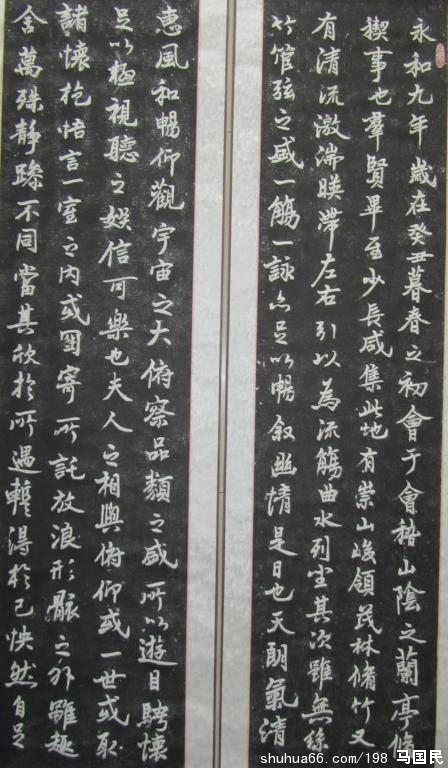 永和九年歲在癸丑暮春之初會于會稽山陰之蘭亭脩
禊事也群賢畢至少長咸集此地有崇山峻領茂林脩竹又
有清流激湍暎帶左右引以為流觴曲水列坐其次雖無絲
竹管弦之盛一觴一詠亦足以暢敘幽情是日也天朗氣清
惠風和暢仰觀宇宙之大俯察品類之盛所以遊目騁懷
足以極視聽之娛信可樂也夫人之相與俯仰一世或取
諸懷抱悟言一室之內或因寄所託放浪形骸之外雖趣
舍萬殊靜躁不同當其欣於所遇蹔得於己怏然自足
shuhua66.com/198 马国民